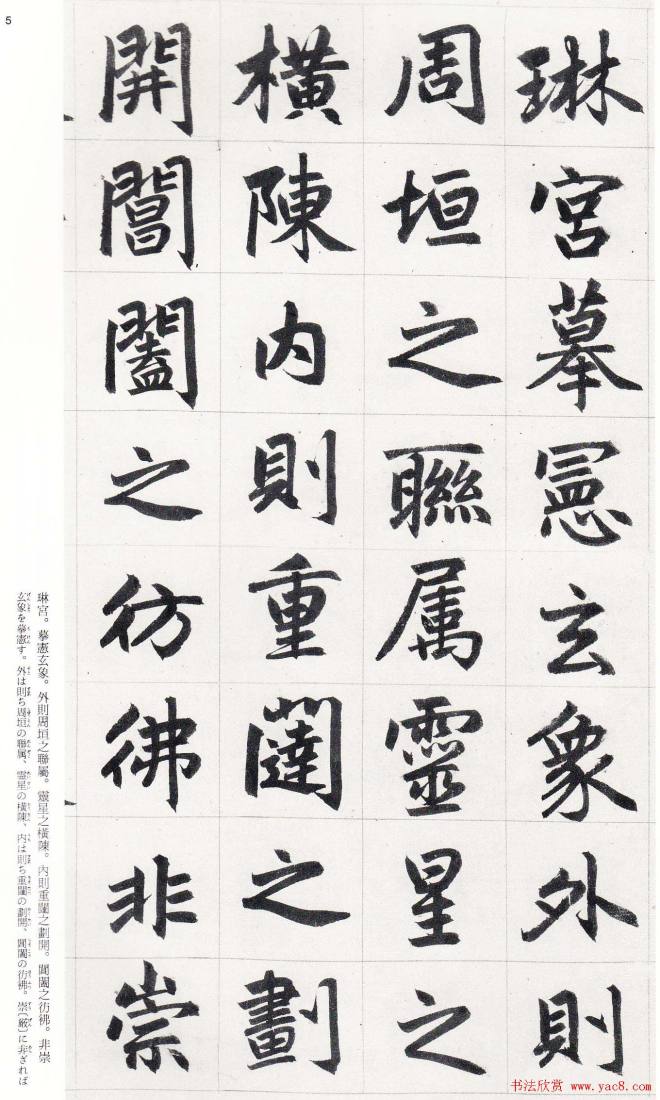 5
琳宮摹憲玄象外則
周垣之聯属靈星之
横陳内則重闥之劃
開閶闔之彷彿非崇
琳宮。摹憲玄象。外則周垣之聯屬。靈星之橫陳。內則重闥之劃開。閶闔之彷彿。非崇
玄象を摹憲す。外は則ち周垣の聯属、霊星の横陳、内は則ち重闥の劃開、閶闔の彷彿。崇〔厳〕に非ざれば
书法欣赏 www.yac8.com